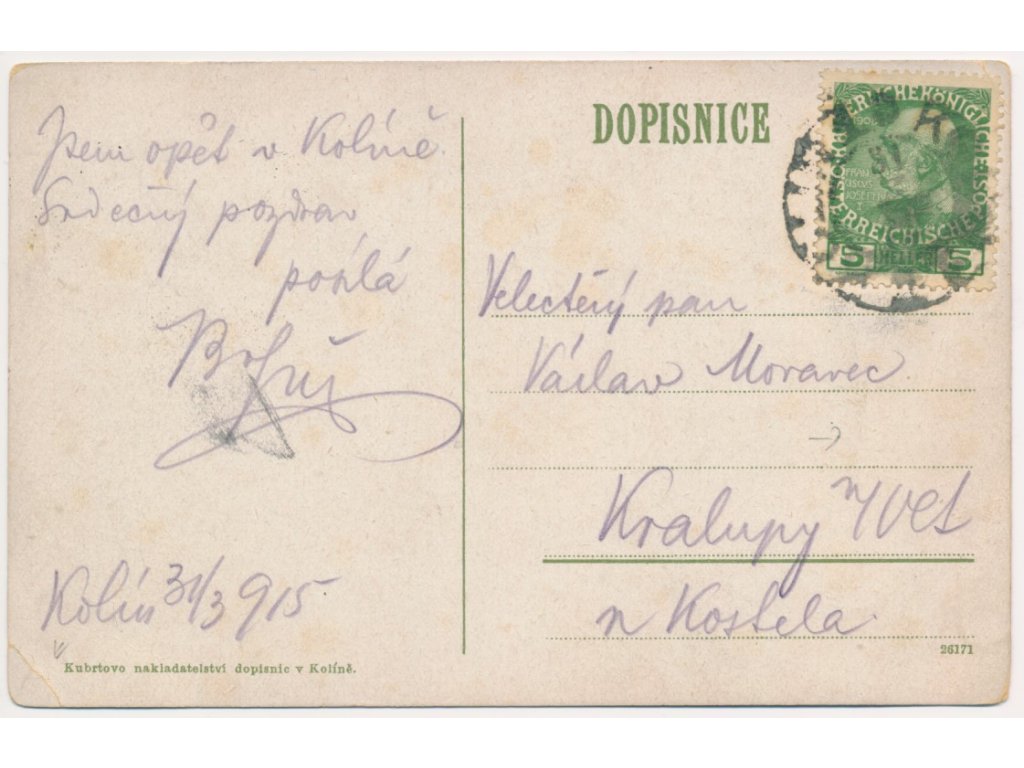 DOPISNICE
Jsem opět v Kolíně.
Srdečný pozdrav
posílá
Bohuš
Kolín 31/3 915
Kubrtovo nakladatelství dopisnic v Kolíně.
1908
FRAN
CISCVS
IOSEPH
5 HELLER 5
Velectěný pan
Václav Moravec
Kralupy n/Vlt
n Kostela
26171